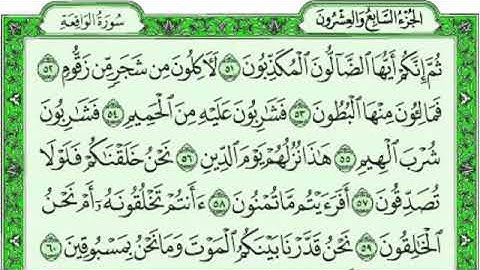 الجُزْءُ السَّابِعُ وَالعِشْرُونَ
سُورَةُ الوَاقِعَةِ
ثُمَّ إِنَّكُمْ أَيُّهَا ٱلضَّآلُّونَ ٱلْمُكَذِّبُونَ ٥١ لَأٓكِلُونَ مِن شَجَرٍ مِّن زَقُّومٍ ٥٢
فَمَالِـُٔونَ مِنْهَا ٱلْبُطُونَ ٥٣ فَشَٰرِبُونَ عَلَيْهِ مِنَ ٱلْحَمِيمِ ٥٤ فَشَٰرِبُونَ
شُرْبَ ٱلْهِيمِ ٥٥ هَٰذَا نُزُلُهُمْ يَوْمَ ٱلدِّينِ ٥٦ نَحْنُ خَلَقْنَٰكُمْ فَلَوْلَا
تُصَدِّقُونَ ٥٧ أَفَرَءَيْتُم مَّا تُمْنُونَ ٥٨ ءَأَنتُمْ تَخْلُقُونَهُۥٓ أَمْ نَحْنُ
ٱلْخَٰلِقُونَ ٥٩ نَحْنُ قَدَّرْنَا بَيْنَكُمُ ٱلْمَوْتَ وَمَا نَحْنُ بِمَسْبُوقِينَ ٦٠